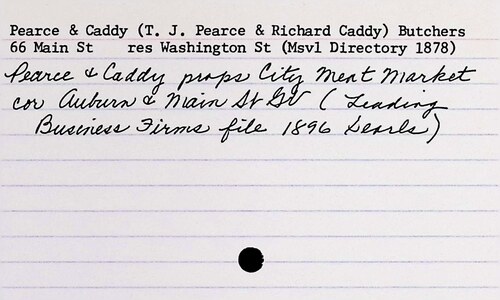 Pearce & Caddy (T. J. Pearce & Richard Caddy) Butchers
66 Main St res Washington St (Msvl Directory 1878)
Pearce & Caddy props City Meat Market
cor Auburn & Main St GV (Leading
Business Firms file 1896 Searls)